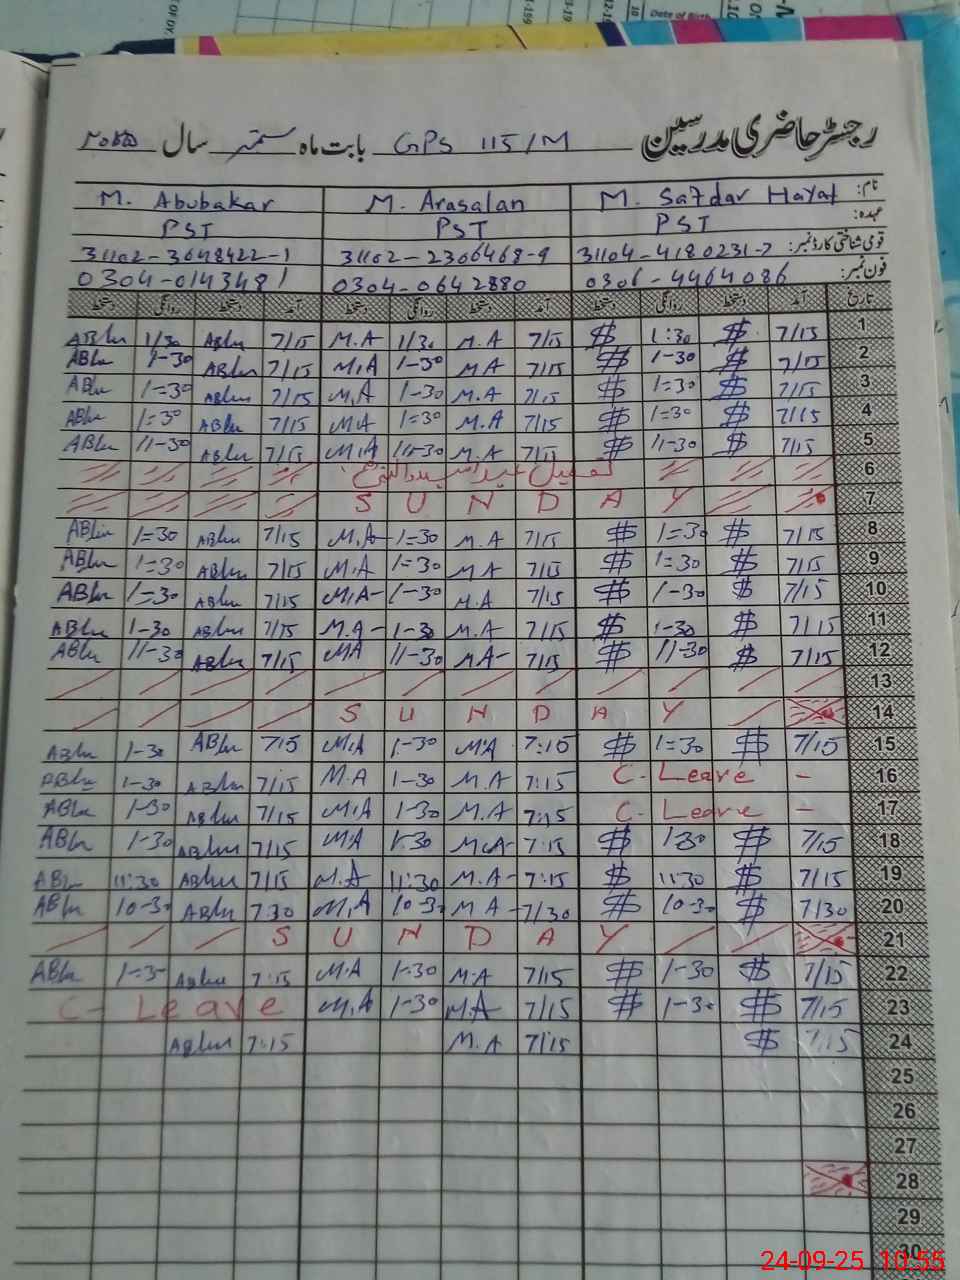 رجسٹر حاضری مدرسین GPS 115/M بابت ماہ ستمبر سال ۲۰۲۵
نام: M. Safdar Hayat M. Arasalan M. Abubakar
عہدہ: PST PST PST
قومی شناختی کارڈ نمبر: 31104-4180231-7 31102-2306468-9 31102-3648422-1
فون نمبر: 0306-4464086 0304-0642880 0304-0143481
تاریخ آمد دستخط روانگی دستخط آمد دستخط روانگی دستخط آمد دستخط روانگی دستخط
1 7/15 $ 1:30 $ 7/15 M.A 1/30 M.A 7/15 ABku 1/30 ABku
2 7/15 $ 1-30 $ 7/15 M.A 1-30 M.A 7/15 ABku 1-30 ABku
3 7/15 $ 1=30 $ 7/15 M.A 1-30 M.A 7/15 ABku 1=30 ABku
4 7/15 $ 1=30 $ 7/15 M.A 1=30 M.A 7/15 ABku 1=30 ABku
5 7/15 $ 11-30 $ 7/15 M.A 11-30 M.A 7/15 ABku 11-30 ABku
6 تعطیل عید میلادالنبی
7 S U N D A Y
8 7/15 $ 1=30 $ 7/15 M.A 1=30 M.A 7/15 ABku 1=30 ABku
9 7/15 $ 1=30 $ 7/15 M.A 1=30 M.A 7/15 ABku 1=30 ABku
10 7/15 $ 1-30 $ 7/15 M.A 1-30 M.A- 7/15 ABku 1=30 ABku
11 7/15 $ 1-30 $ 7/15 M.A 1-30 M.A- 7/15 ABku 1-30 ABku
12 7/15 $ 11-30 $ 7/15 MA- 11-30 MA 7/15 ABku 11-30 ABku
13
14 S U N D A Y
15 7/15 $ 1=30 $ 7:15 M.A 1-30 M.A 7/15 ABku 1-30 ABku
16 - C- Leave 7:15 M.A 1-30 M.A 7/15 ABku 1-30 ABku
17 - C- Leave 7:15 M.A 1-30 M.A 7/15 ABku 1-30 ABku
18 7/15 $ 1-30 $ 7:15 M.A- 1-30 M.A 7/15 ABku 1-30 ABku
19 7/15 $ 11:30 $ 7:15 M.A- 11:30 M.A 7/15 ABku 11:30 ABku
20 7/30 $ 10-30 $ 7/30 M A- 10-30 M.A 7:30 ABku 10-30 ABku
21 S U N D A Y
22 7/15 $ 1-30 $ 7/15 M.A 1-30 M.A 7:15 ABku ABku
23 7/15 $ 1-30 $ 7/15 M.A 1-30 M.A C- Leave
24 7/15 $ 7/15 M.A 7:15 ABku
25
26
27
28
29
30
24-09-25 10:55